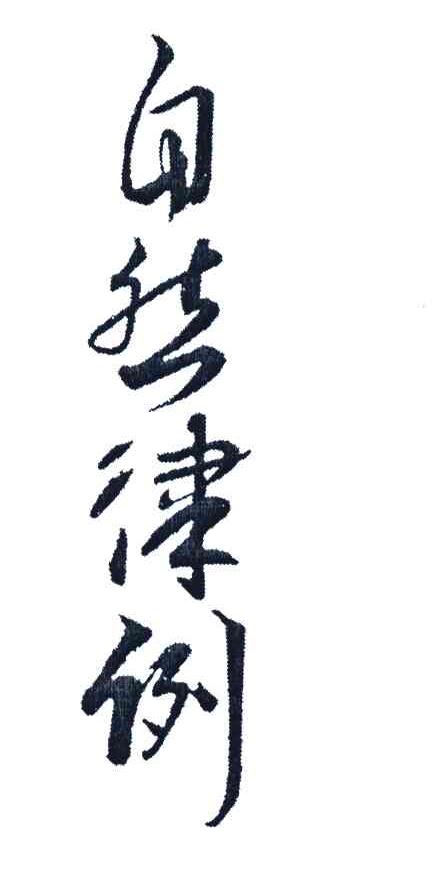 自然律例